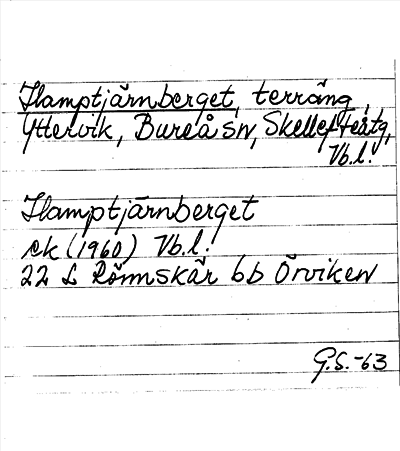 Hamptjärnberget, terräng,
Yttervik, Bureå sn, Skellefteåtg,
Vb.l.
Hamptjärnberget
ek (1960) Vb.l.
22 L Rönnskär 6b Örviken
G.S.-63